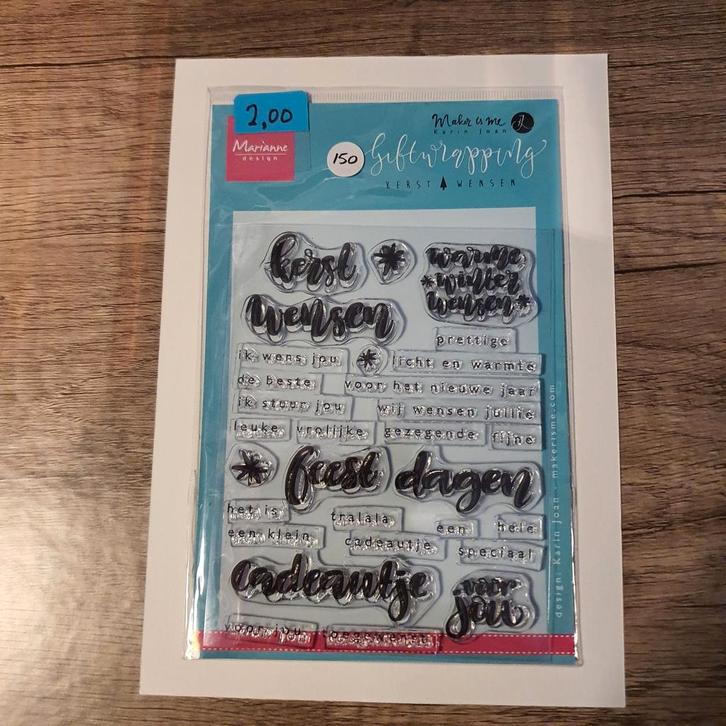 2,00
Marianne
design
Maker is me
Karin Joan
150
Giftwrapping
KERST WENSEN
kerst
warme
winter
wensen
wensen
prettige
ik wens jou
licht en warmte
de beste
voor het nieuwe jaar
ik stuur jou
wij wensen jullie
leuke vrolijke gezegende fijne
feest dagen
het is
tralala
een hele
een klein
cadeautje
speciaal
cadeautje
voor
jou
voor jou toegewenst
design: Karin Joan - makerisme.com